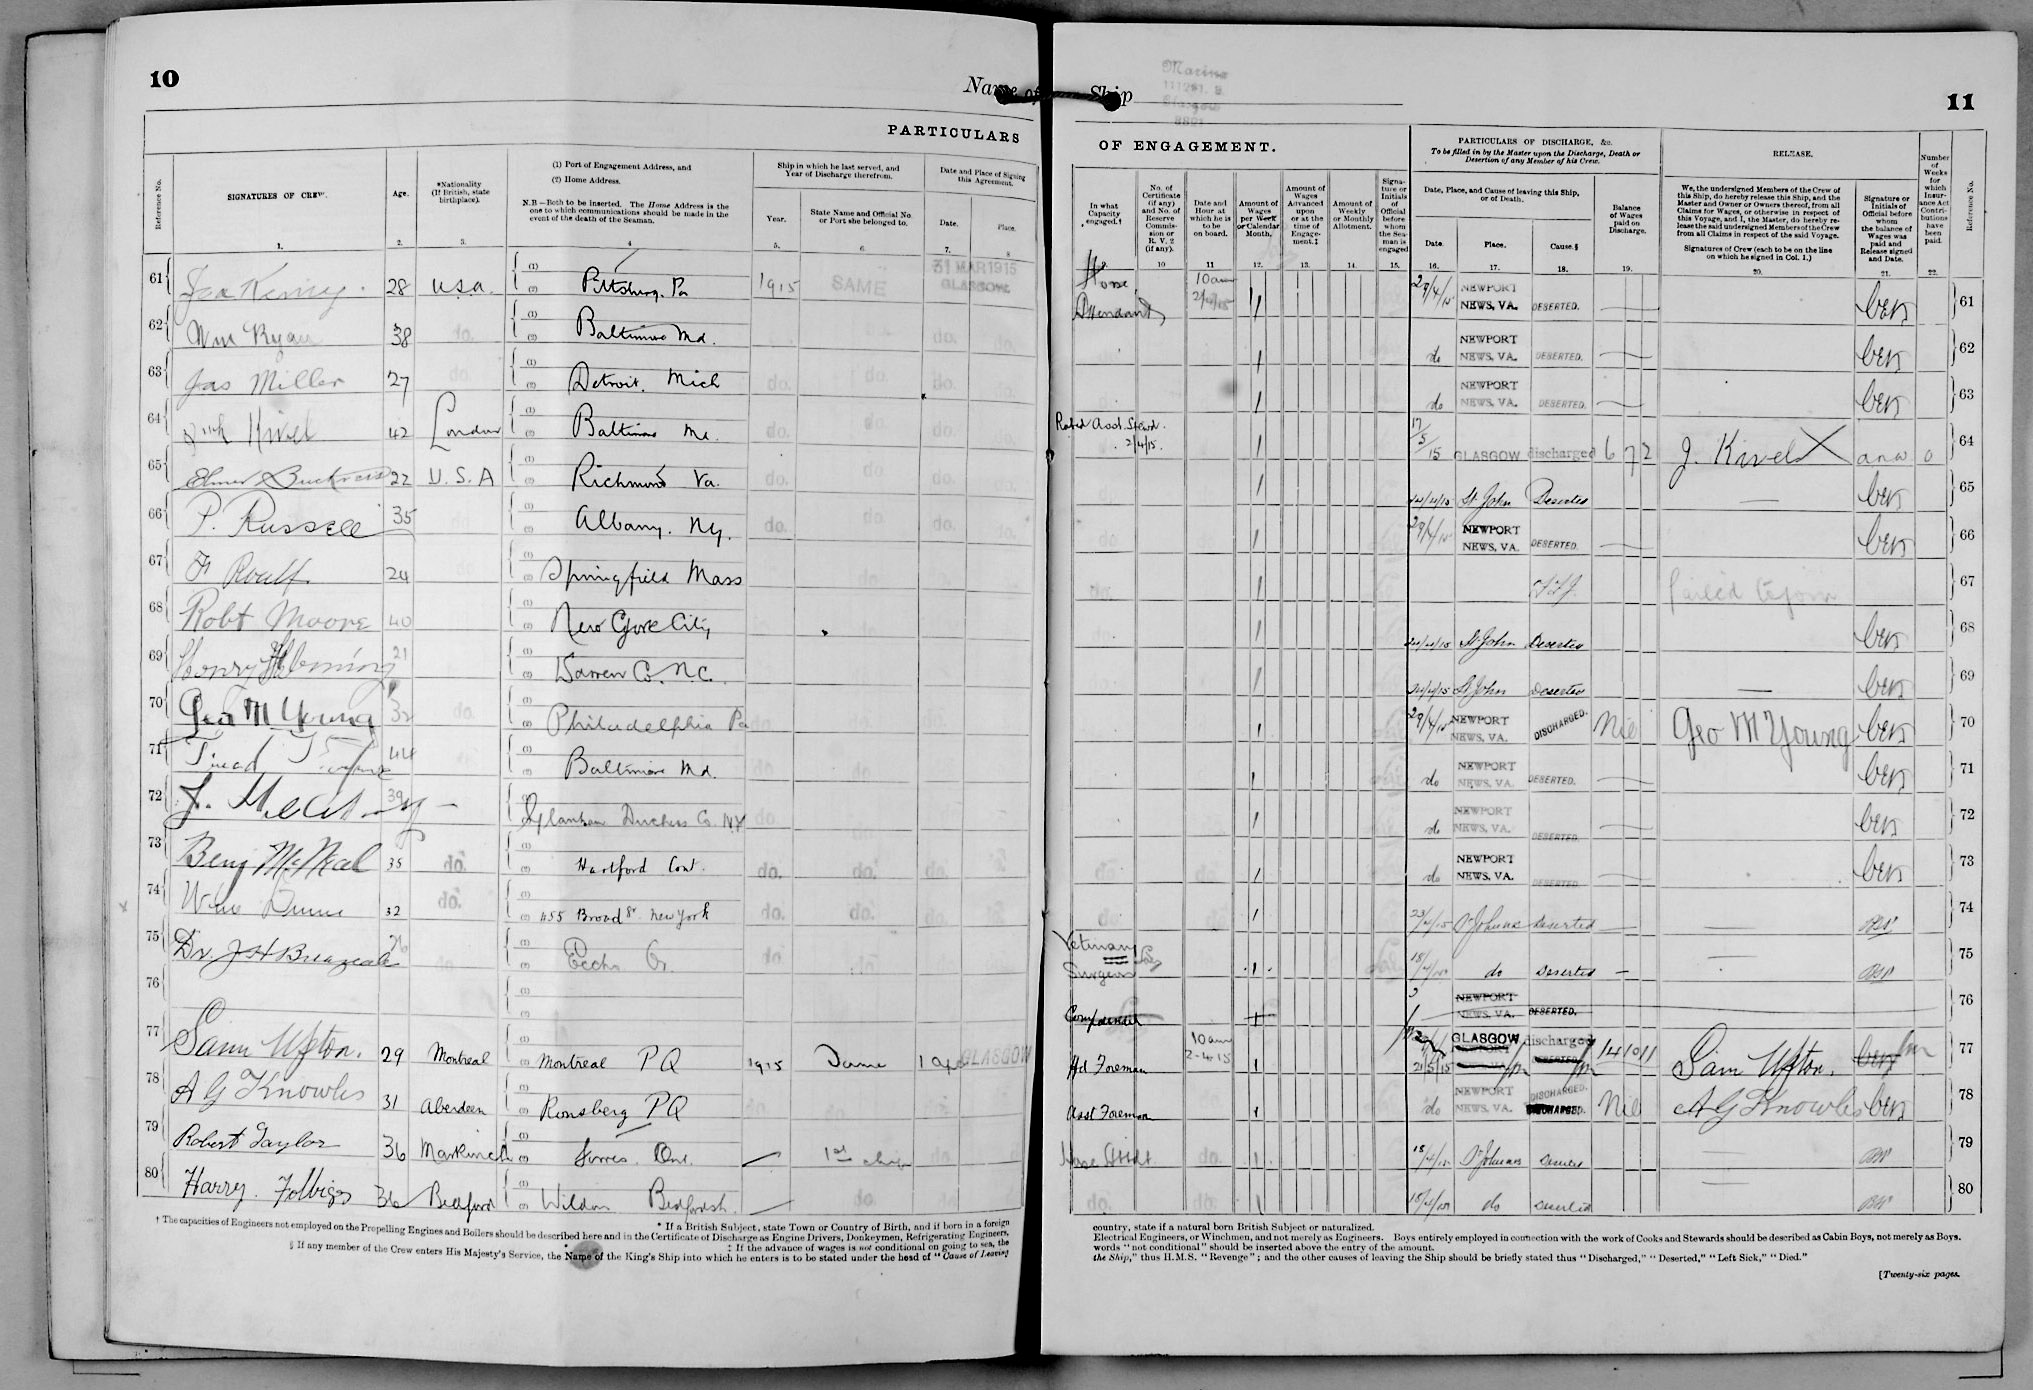 10
Name of Ship
Marina
111291. S.
Glasgow
8891
11
PARTICULARS OF ENGAGEMENT.
PARTICULARS OF DISCHARGE, &c.
To be filled in by the Master upon the Discharge, Death or Desertion of any Member of his Crew.
RELEASE.
Reference No.
SIGNATURES OF CREW.
Age.
*Nationality (If British, state birthplace).
(1) Port of Engagement Address, and
(2) Home Address.
N.B—Both to be inserted. The Home Address is the one to which communications should be made in the event of the death of the Seaman.
Ship in which he last served, and Year of Discharge therefrom.
Year.
State Name and Official No. or Port she belonged to.
Date and Place of Signing this Agreement.
Date.
Place.
In what Capacity engaged.†
No. of Certificate (if any) and No. of Reserve Commission or R. V. 2 (if any).
Date and Hour at which he is to be on board.
Amount of Wages per Week or Calendar Month.
Amount of Wages Advanced upon or at the time of Engagement.‡
Amount of Weekly or Monthly Allotment.
Signature or Initials of Official before whom the Seaman is engaged
Date, Place, and Cause of leaving this Ship, or of Death.
Date.
Place.
Cause.§
Balance of Wages paid on Discharge.
We, the undersigned Members of the Crew of this Ship, do hereby release this Ship, and the Master and Owner or Owners thereof, from all Claims for Wages, or otherwise in respect of this Voyage, and I, the Master, do hereby release the said undersigned Members of the Crew from all Claims in respect of the said Voyage.
Signatures of Crew (each to be on the line on which he signed in Col. 1.)
Signature or Initials of Official before whom the balance of Wages was paid and Release signed and Date.
Number of Weeks for which Insurance Act Contributions have been paid.
Reference No.
1. 2. 3. 4 5. 6. 7. 8 9. 10 11 12. 13. 14. 15. 16. 17. 18. 19. 20. 21. 22.
61 28 U.S.A. Pittsburg. Pa 1915 SAME 31 MAR 1915 GLASGOW Horse Attendant 10am 2/4/15 1 29/4/15 NEWPORT NEWS, VA. DESERTED. 61
62 Wm Ryan 38 do. Baltimore Md. do. do. do. 1 do NEWPORT NEWS, VA. DESERTED. 62
63 Jas Miller 27 do. Detroit. Mich do. do. do. 1 do NEWPORT NEWS, VA. DESERTED. 63
64 Kivel 42 London Baltimore Md. do. do. do. do. Rated Asst. Stewd. 2/4/15. 1 17/5/15 GLASGOW discharged 6 7 2 J. Kivel X 0 64
65 Elmer 22 U.S.A Richmond Va. do. do. do. do. 1 24/4/15 St John Deserted 65
66 P. Russell 35 Albany. NY. do. do. do. do. 1 29/4/15 NEWPORT NEWS, VA. DESERTED. 66
67 24 Springfield Mass 1 F.T.J. failed to join 67
68 Robt Moore 40 New York City 1 24/4/15 St John Deserted 68
69 Henry Fleming 21 Warren Co. N.C. 1 24/4/15 St John Deserted 69
70 Geo M Young 32 do. Philadelphia Pa do 1 29/4/15 NEWPORT NEWS, VA. DISCHARGED. Nil Geo M Young 70
71 44 Baltimore Md. do 1 do NEWPORT NEWS, VA. DESERTED. 71
72 39 Duchess Co. N.Y do 1 do NEWPORT NEWS, VA. DESERTED. 72
73 Benj McNeal 35 do. Hartford Cont. do. do. do. 1 do NEWPORT NEWS, VA. DESERTED. 73
74 32 do. 455 Broad St. New York do. do. do. 1 23/4/15 St Johns deserted 74
75 Dr. 26 do Veterinary Surgeon 1 do Deserted 75
76 NEWPORT NEWS, VA. DESERTED. 76
77 Sam Upton. 29 Montreal Montreal PQ 1915 Same GLASGOW Hd Foreman 10am 2-4-15 1 21/5/15 GLASGOW discharged 14 10 11 Sam Upton. 77
78 A G Knowles 31 Aberdeen PQ Asst Foreman 1 do NEWPORT NEWS, VA. DISCHARGED. Nil A G Knowles 78
79 Robert Taylor 36 Markinch Ont. 1st ship do do. 1 18/4/15 St Johns 79
80 Harry. Folbigg 36 Bedford Bedfordsh. do do. do. 1 18/4/15 do deserted 80
† The capacities of Engineers not employed on the Propelling Engines and Boilers should be described here and in the Certificate of Discharge as Engine Drivers, Donkeymen, Refrigerating Engineers,
* If a British Subject, state Town or Country of Birth, and if born in a foreign
‡ If the advance of wages is not conditional on going to sea, the
§ If any member of the Crew enters His Majesty's Service, the Name of the King's Ship into which he enters is to be stated under the head of "Cause of Leaving
country, state if a natural born British Subject or naturalized.
Electrical Engineers, or Winchmen, and not merely as Engineers. Boys entirely employed in connection with the work of Cooks and Stewards should be described as Cabin Boys, not merely as Boys.
words "not conditional" should be inserted above the entry of the amount.
the Ship," thus H.M.S. "Revenge"; and the other causes of leaving the Ship should be briefly stated thus "Discharged," "Deserted," "Left Sick," "Died."
[Twenty-six pages.